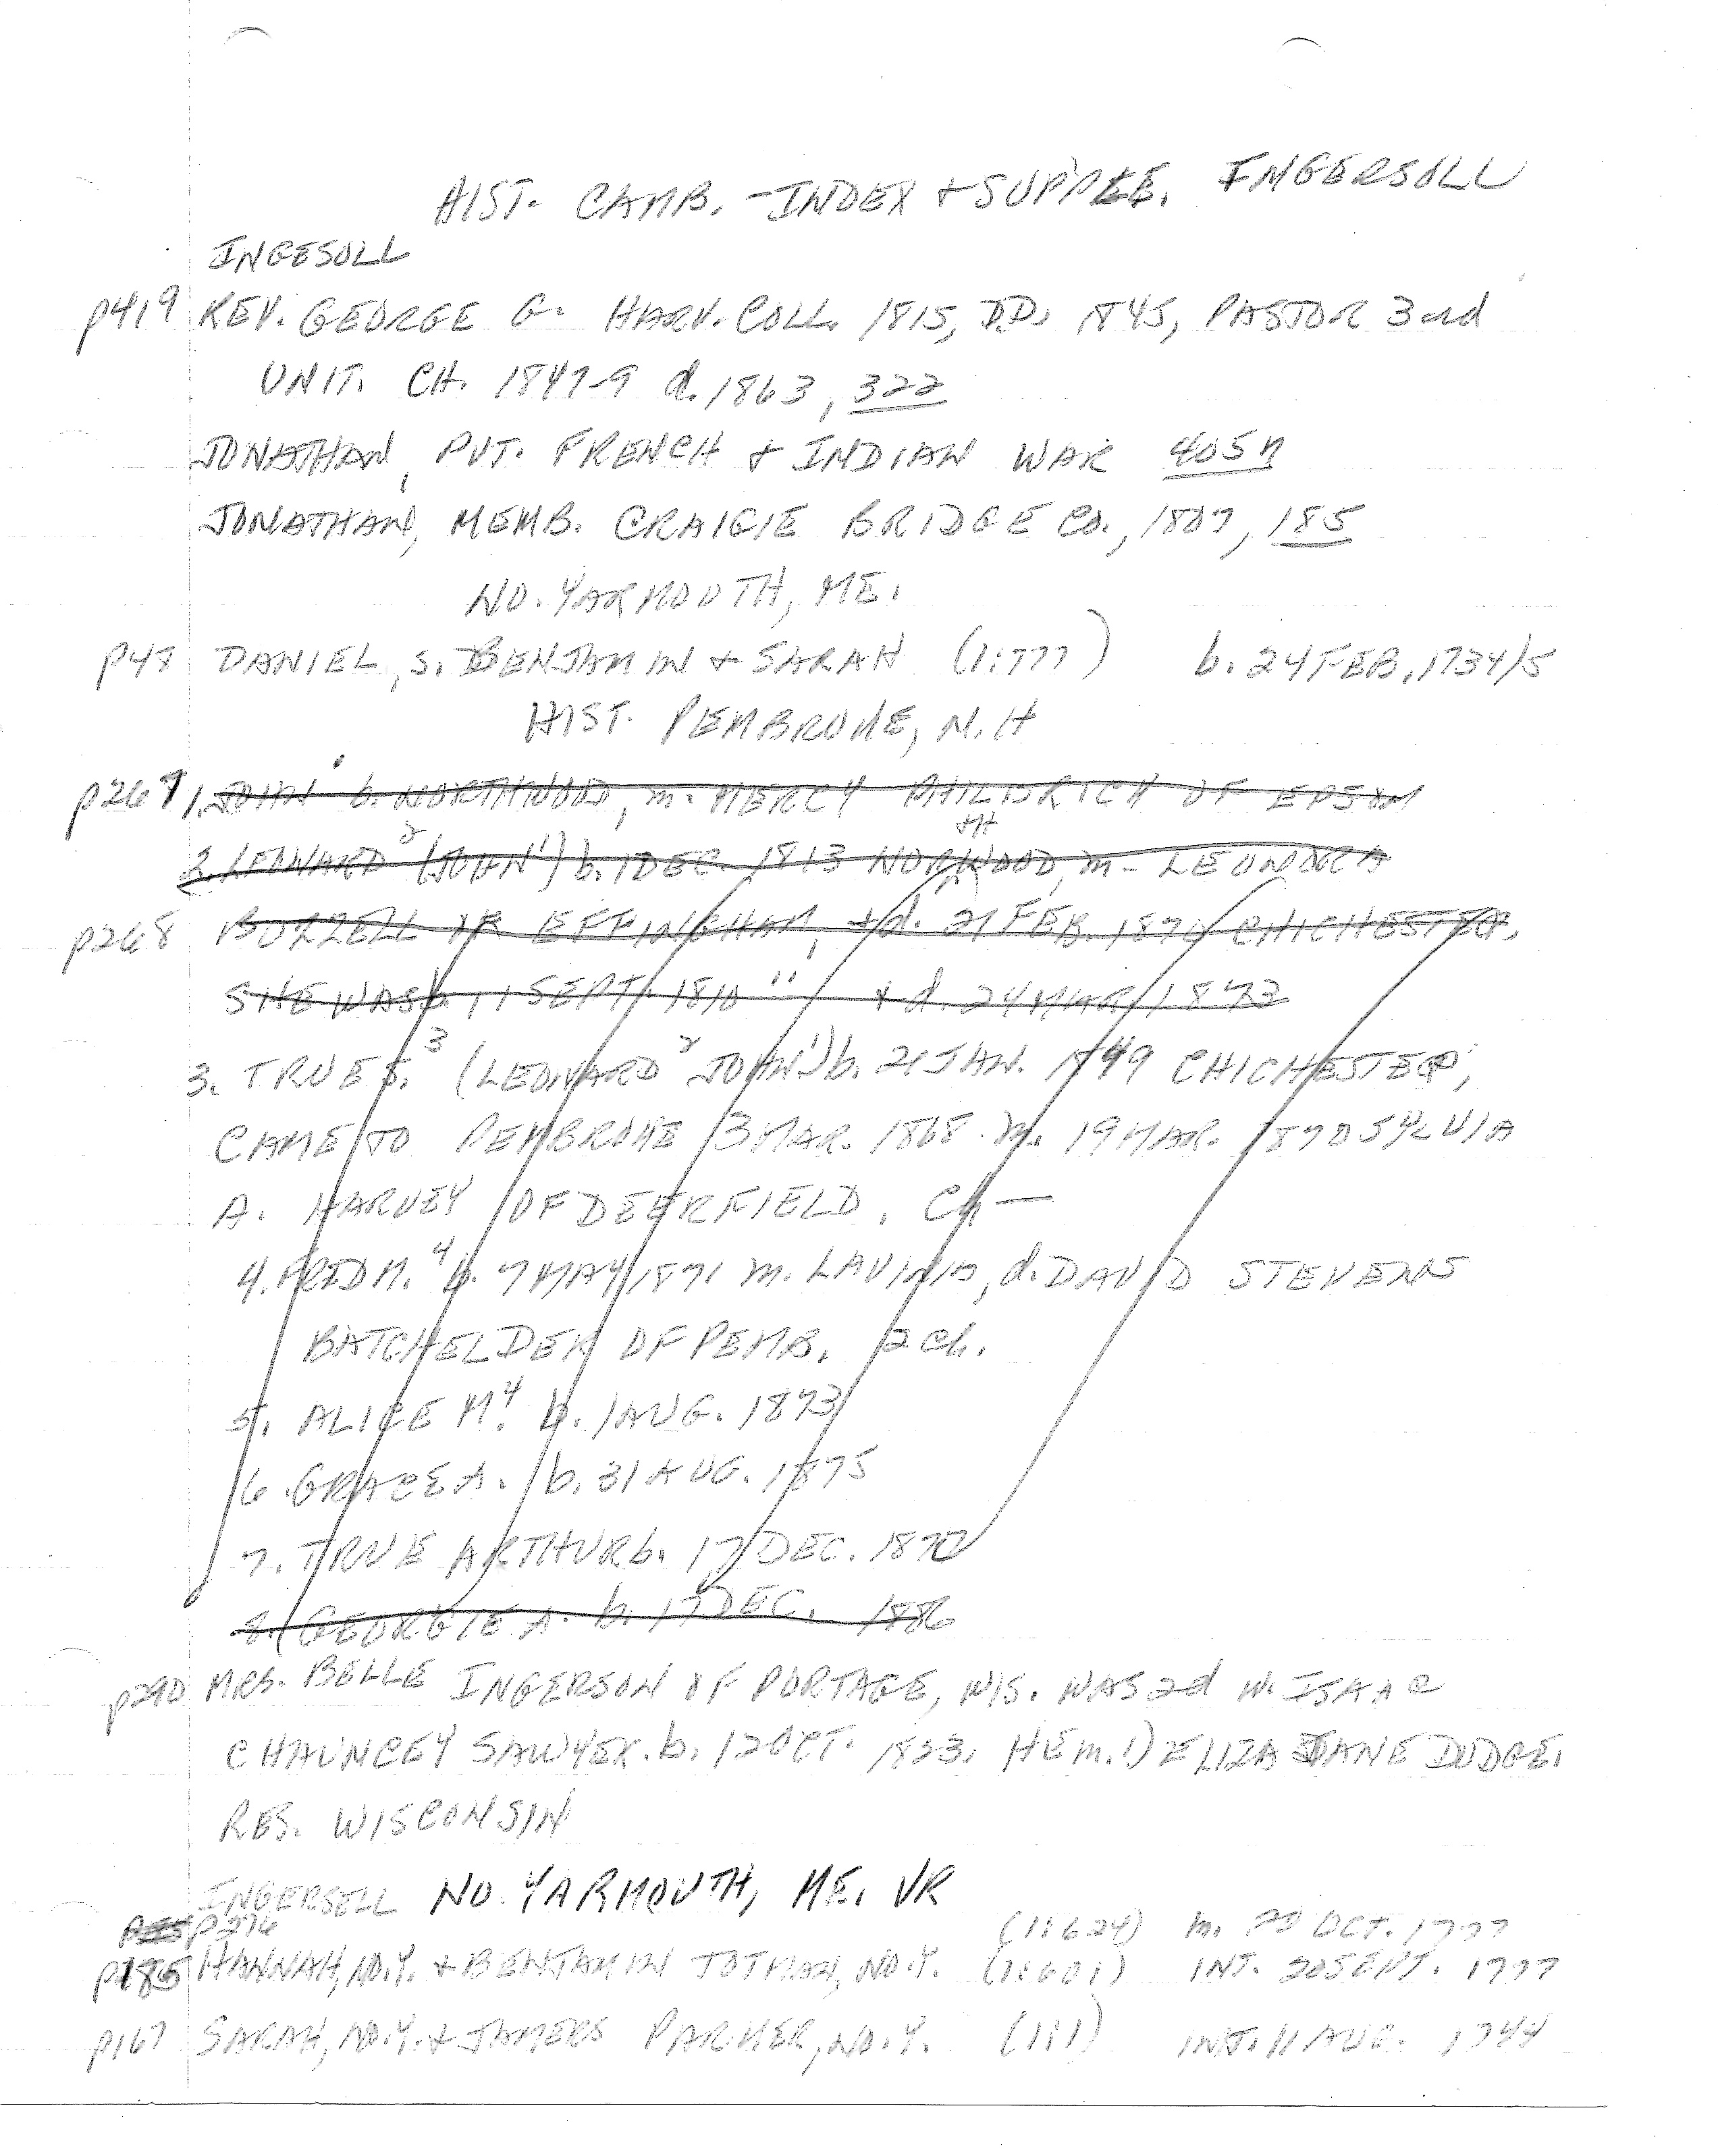 HIST. CAMB. - INDEX + SUPPLE. INGERSOLL
INGESOLL
p419 REV. GEORGE G. HARV. COLL. 1815, D.D. 1845, PASTOR 3rd
UNIT. CH. 1847-9 d. 1863, 322
JONATHAN, PVT. FRENCH + INDIAN WAR 405n
JONATHAN, MEMB. CRAIGIE BRIDGE CO., 1807, 185
NO. YARMOUTH, ME.
p48 DANIEL, s. BENJAMIN + SARAH (1:777) b. 24 FEB. 1734/5
HIST. PEMBROKE, N.H
p267 1. JOHN b. NORTHWOOD, m. MERCY PHILBRICK OF EPSOM
2. LEONARD2 (JOHN1) b. 1 DEC. 1813 NORTHWOOD, m- LEONORA
p268 BUZZELL OF EFFINGHAM, + d. 21 FEB. 1870 CHICHESTER.
SHE WAS b. 11 SEPT. 1810 " + d. 24 MAR. 1873
3. TRUE S.3 (LEONARD2 JOHN1) b. 21 JAN. 1849 CHICHESTER;
CAME TO PEMBROKE 3 MAR. 1868. m. 19 MAR. 1870 SYLVIA
A. HARVEY OF DEERFIELD. Ch—
4. FRED M.4 b. 7 MAY 1871 m. LAVINIA, d. DAVID STEVENS
BATCHELDER OF PEMB. 2 ch.
5. ALICE M.4 b. 1 AUG. 1873
6. GRACE A. b. 31 AUG. 1875
7. TRUE ARTHUR b. 17 DEC. 1877
8. GEORGIE A. b. 17 DEC. 1886
p290 MRS. BELLE INGERSON OF PORTAGE, WIS. WAS 2d w. ISAAC
CHAUNCEY SAWYER. b. 12 OCT. 1823. HE m. 1) ELIZA JANE DODGE.
RES. WISCONSIN
INGERSELL NO. YARMOUTH, ME. VR
p276 (1:624) m. 20 OCT. 1777
p185 HANNAH, NO.Y. + BENJAMIN TOTMAN, NO.Y. (1:601) INT. 20 SEPT. 1777
p167 SARAH, NO.Y. + JAMERS PARKER, NO.Y. (1:1) INT. 11 AUG. 1744